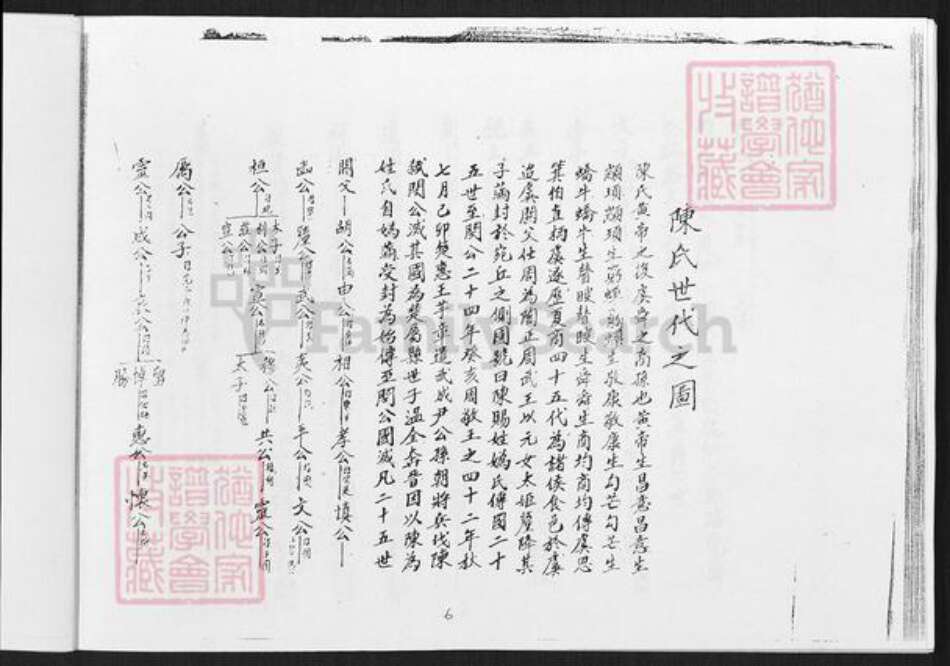 陳氏世代之圖
陳氏黃帝之後虞舜之裔孫也黃帝生昌意昌意生
顓頊顓頊生窮蟬窮蟬生敬康敬康生勾芒勾芒生
蟜牛蟜牛生瞽瞍瞽瞍生舜舜生商均商均傳虞思
箕伯直柄虞遂歷夏商四十五代為諸侯食邑於虞
迨虞閼父仕周為陶正周武王以元女太姬釐降其
子滿封於宛丘之側國號曰陳賜姓媯氏傳國二十
五世至閔公二十四年癸亥周敬王之四十二年秋
七月己卯楚惠王芊章遣武成尹公孫朝將兵伐陳
弒閔公滅其國為楚屬縣世子溫全奔晋因以陳為
姓氏自媯滿受封為始傳至閔公國滅凡二十五世
閼父 胡公 申公 相公 孝公 慎公
幽公 釐公 武公 夷公 平公 文公
桓公 太子 利公 莊公 宣公 穆公 太子 共公 靈公
厲公 公子
靈公 成公 哀公 悼 勝 惠公 懷公
6
猶他家
譜學會
收藏
FamilySearch
猶他家
譜學會
收藏